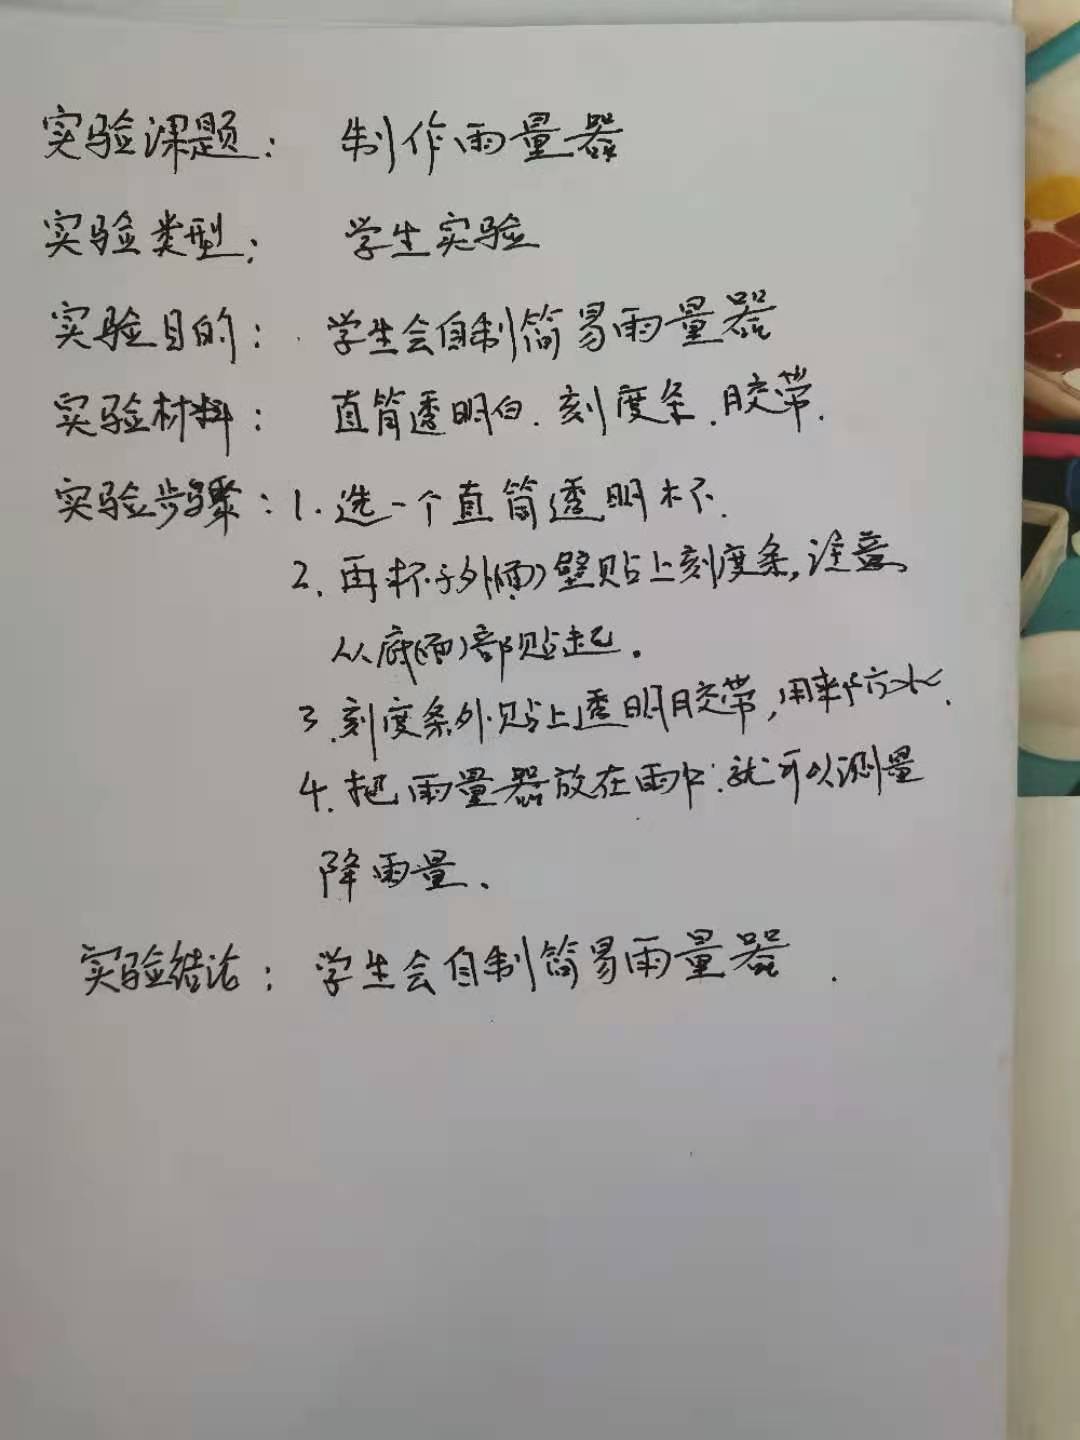 实验课题： 制作雨量器
实验类型： 学生实验
实验目的： 学生会自制简易雨量器
实验材料： 直筒透明白.刻度条.胶带.
实验步骤：1.选一个直筒透明杯.
2.再杯子外(面)壁贴上刻度条,注意、
从底(面)部贴起。
3.刻度条外贴上透明胶带,用来防水.
4.把雨量器放在雨中.就可以测量
降雨量.
实验结论： 学生会自制简易雨量器.